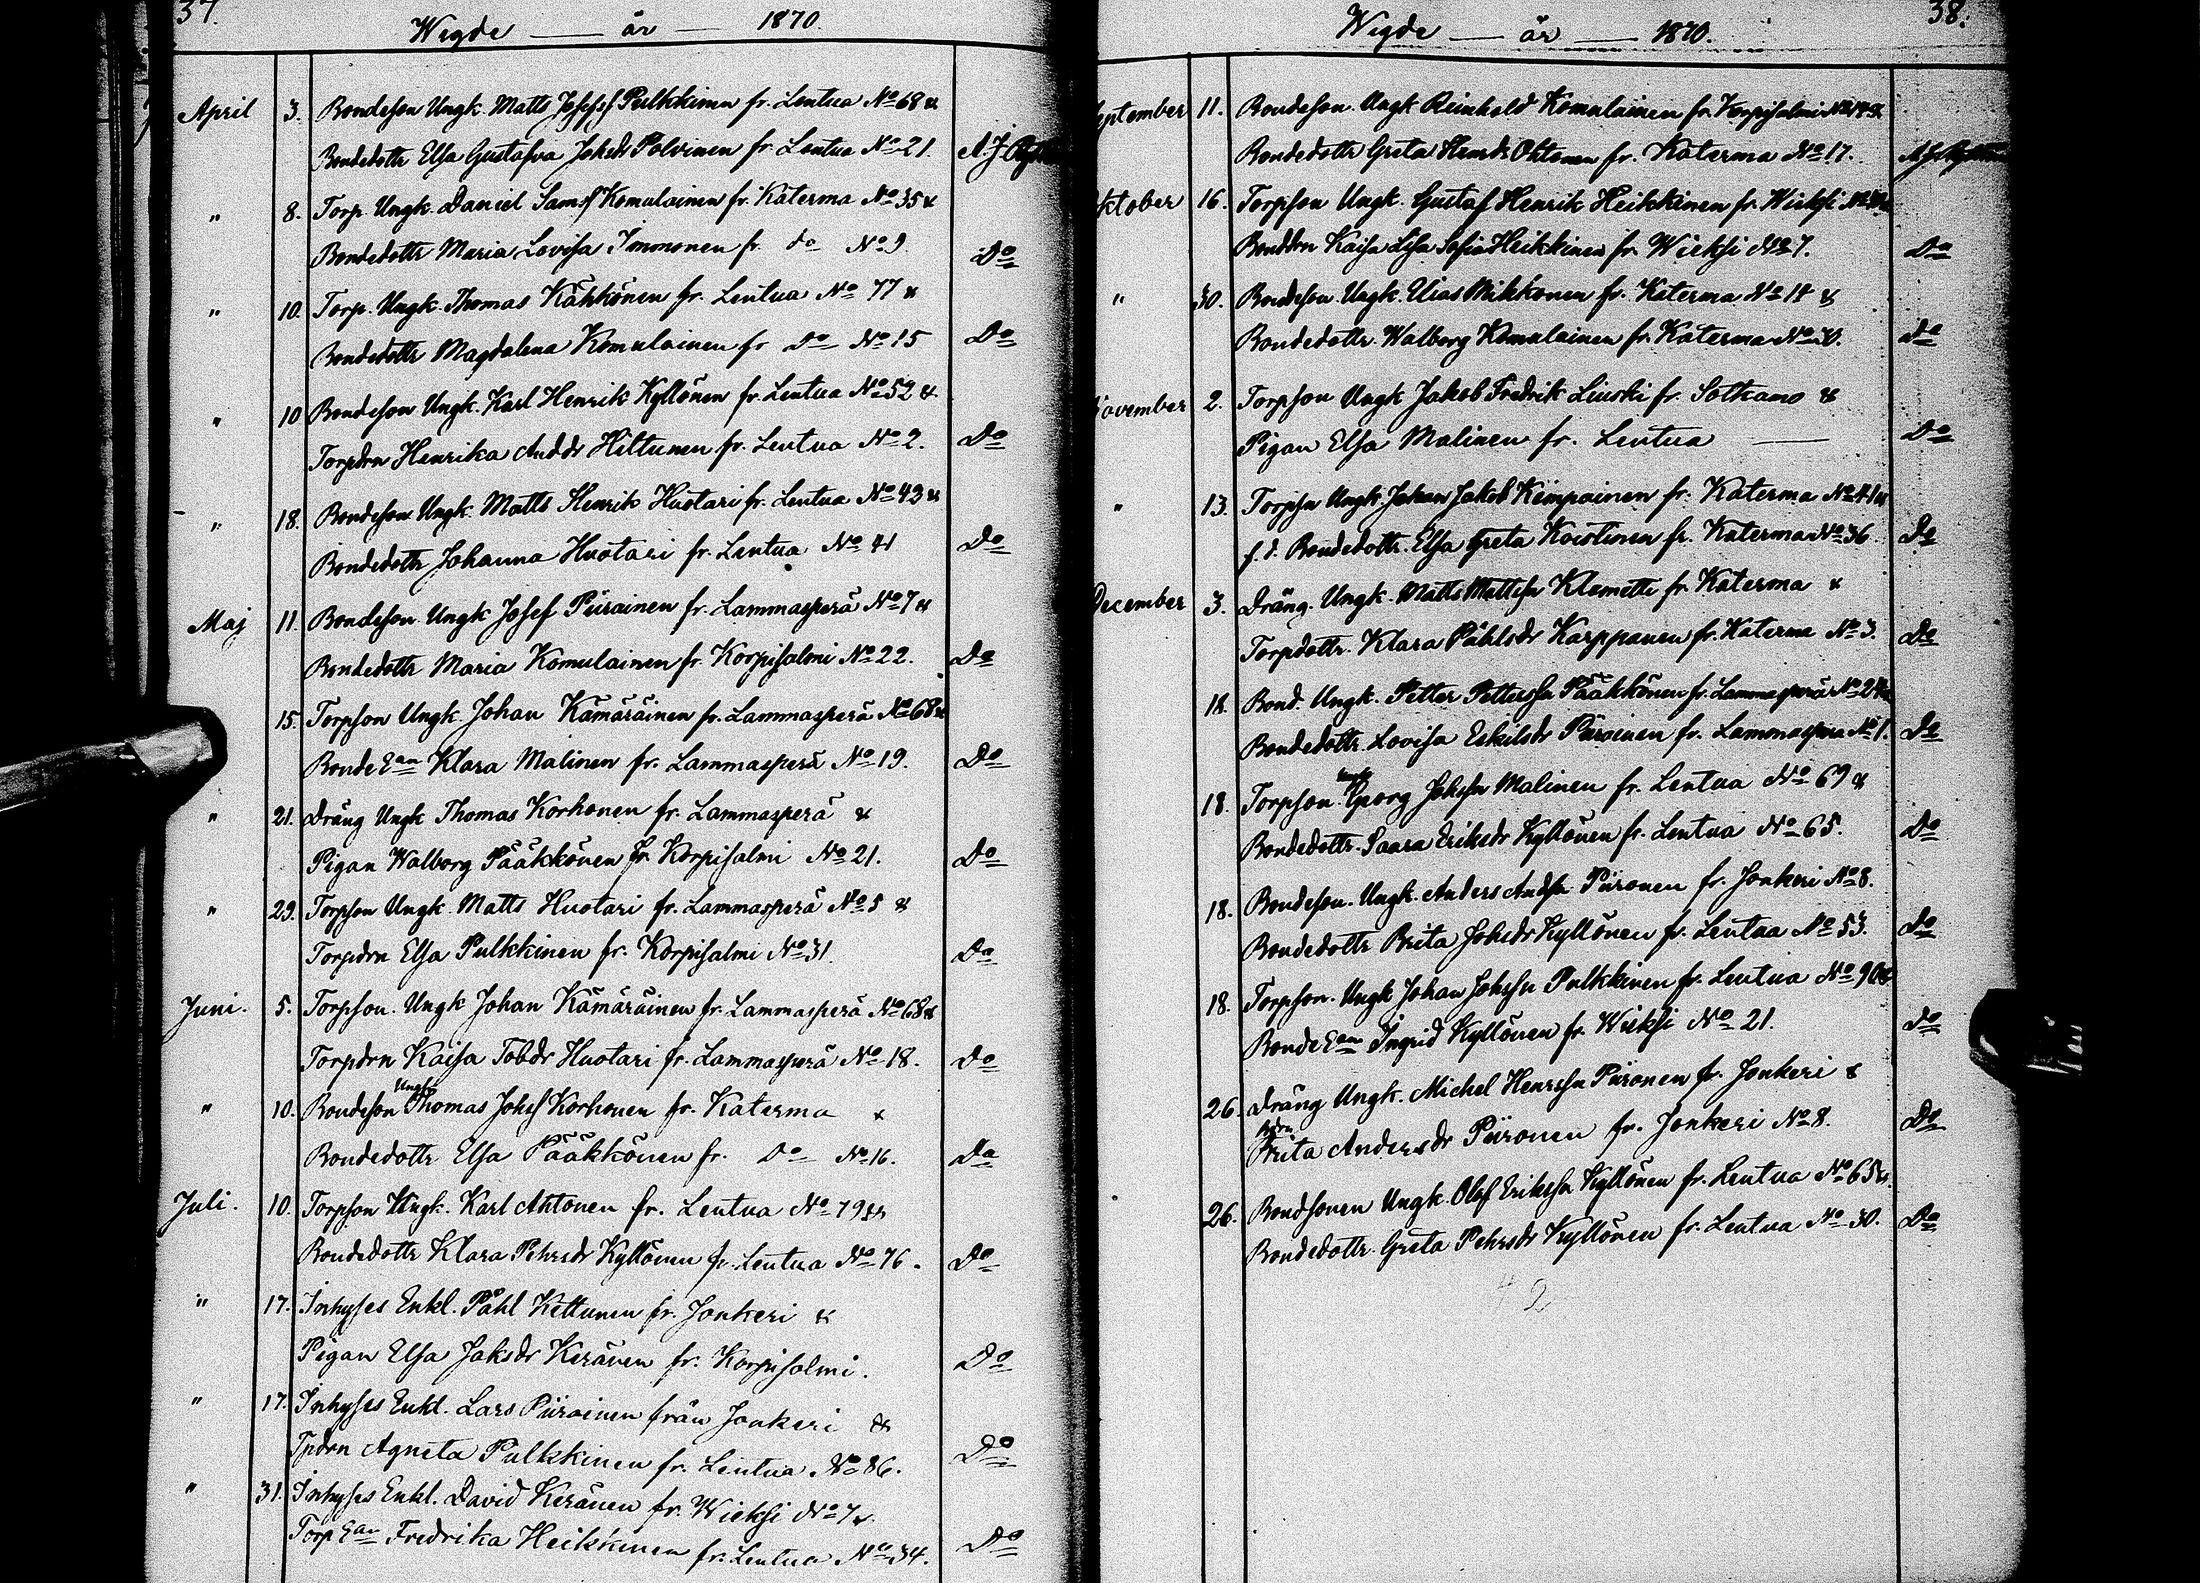 37.
Wigde — år — 1870.
April 3. Bondeson Ungk. Matts Josefsf Pulkkinen fr. Lentua No 68 &
Bondedottr Elsa Gustafva Johsdr Polvinen fr. Lentua No 21. A. J.
" 8. Torp. Ungk. Daniel Samsf Komulainen fr. Katerma No 35 &
Bondedottr Maria Lovisa Immonen fr. do No 9. Do
" 10. Torp. Ungk. Thomas Kähkönen fr. Lentua No 77 &
Bondedottr Magdalena Komulainen fr Do No 15 Do
" 10 Bondeson Ungk. Karl Henrik Kyllönen fr. Lentua No 52 &
Torpdrn Henrika Anddr Hiltunen fr. Lentua No 2. Do
" 18. Bondeson Ungk. Matts Henrik Huotari fr. Lentua No 43 &
Bondedottr Johanna Huotari fr. Lentua No 41 Do
Maj 11. Bondeson Ungk Josef Piirainen fr. Lammasperä No 7 &
Bondedottr Maria Komulainen fr. Korpisalmi No 22. Do
15. Torpson Ungk. Johan Kämäräinen fr. Lammasperä No 68 &
Bonde Ean Klara Malinen fr. Lammasperä No 19. Do
" 21. Dräng Ungk Thomas Korhonen fr. Lammasperä &
Pigan Walborg Pääkkönen fr. Korpisalmi No 21. Do
" 29. Torpson Ungk. Matts Huotari fr. Lammasperä No 5 &
Torpdrn Elsa Pulkkinen fr. Korpisalmi No 31. Do
Juni. 5. Torpson. Ungk Johan Kämäräinen fr. Lammasperä No 68 &
Torpdrn Kaisa Tobdr Huotari fr. Lammasperä No 18. Do
" 10. Bondeson Ungk Thomas Johsf Korhonen fr. Katerma &
Bondedottr Elsa Pääkkönen fr. Do No 16. Do
Juli. 10. Torpson Ungk. Karl Ahtonen fr. Lentua No 79 &
Bondedottr Klara Pehrsdr Kyllönen fr. Lentua No 76. Do
" 17. Inhyses Enkl. Påhl Kettunen fr. Jonkeri &
Pigan Elsa Jaksdr Keränen fr. Korpisalmi. Do
" 17. Inhyses Enkl. Lars Piirainen från Jonkeri &
Tpdrn Agneta Pulkkinen fr. Lentua No 86. Do
" 31. Inhyses Enkl. David Keränen fr. Wieksi No 7 &
Torp Ean Fredrika Heikkinen fr. Lentua No 34. Do
38.
Wigde — år — 1870.
September 11. Bondeson. Ungk Reinhold Komulainen fr. Korpisalmi
Bondedottr Greta Hansdr Ohtonen fr. Katerma No 17.
Oktober 16. Torpson Ungk. Gustaf Henrik Heikkinen fr. Wieksi
Bonddrn Kaisa Lisa Sofia Heikkinen fr. Wieksi No 7. Do
" 30. Bondeson. Ungk. Elias Mikkonen fr. Katerma No 14 &
Bondedottr. Walborg Komulainen fr. Katerma No 30. do
November 2. Torpson Ungk Jakob Fredrik Liuski fr. Sotkamo &
Pigan Elsa Malinen fr. Lentua — Do
" 13. Torpsn Ungk. Johan Jakob Kemppainen fr. Katerma No 41 &
f. d. Bondedottr. Elsa Greta Koistinen fr. Katerma No 36. Do
December 3. Dräng. Ungk. Matts Mattssn Klemetti fr. Katerma &
Torpdottr. Klara Påhlsdr Karppanen fr. Katerma No 3. Do
18. Bond. Ungk. Petter Petterssn Pääkkönen fr. Lammasperä No 24 &
Bondedottr. Lovisa Eskilsdr Piirainen fr. Lammaspera No 1. Do
18. Torpson. Ungk Georg Johssn Malinen fr. Lentua No 69 &
Bondedottr. Saara Eriksdr Kyllönen fr. Lentua No 65. Do
18. Bondeson. Ungk. Anders Andsn Piironen fr. Jonkeri No 8.
Bondedottr Brita Johsdr Kyllönen fr. Lentua No 53. Do
18. Torpson. Ungk Johan Johssn Pulkkinen fr. Lentua No 90 &
Bonde Ean Ingrid Kyllönen fr. Wieksi No 21. Do
26. Dräng Ungk. Michel Henrssn Piironen fr. Jonkeri &
Brita Andersdr Piironen fr. Jonkeri No 8. Do
26. Bondsonen Ungk. Olof Erikssn Kyllönen fr. Lentua No 65 &
Bondedottr. Greta Pehrsdr Kyllönen fr. Lentua No 30. Do
2